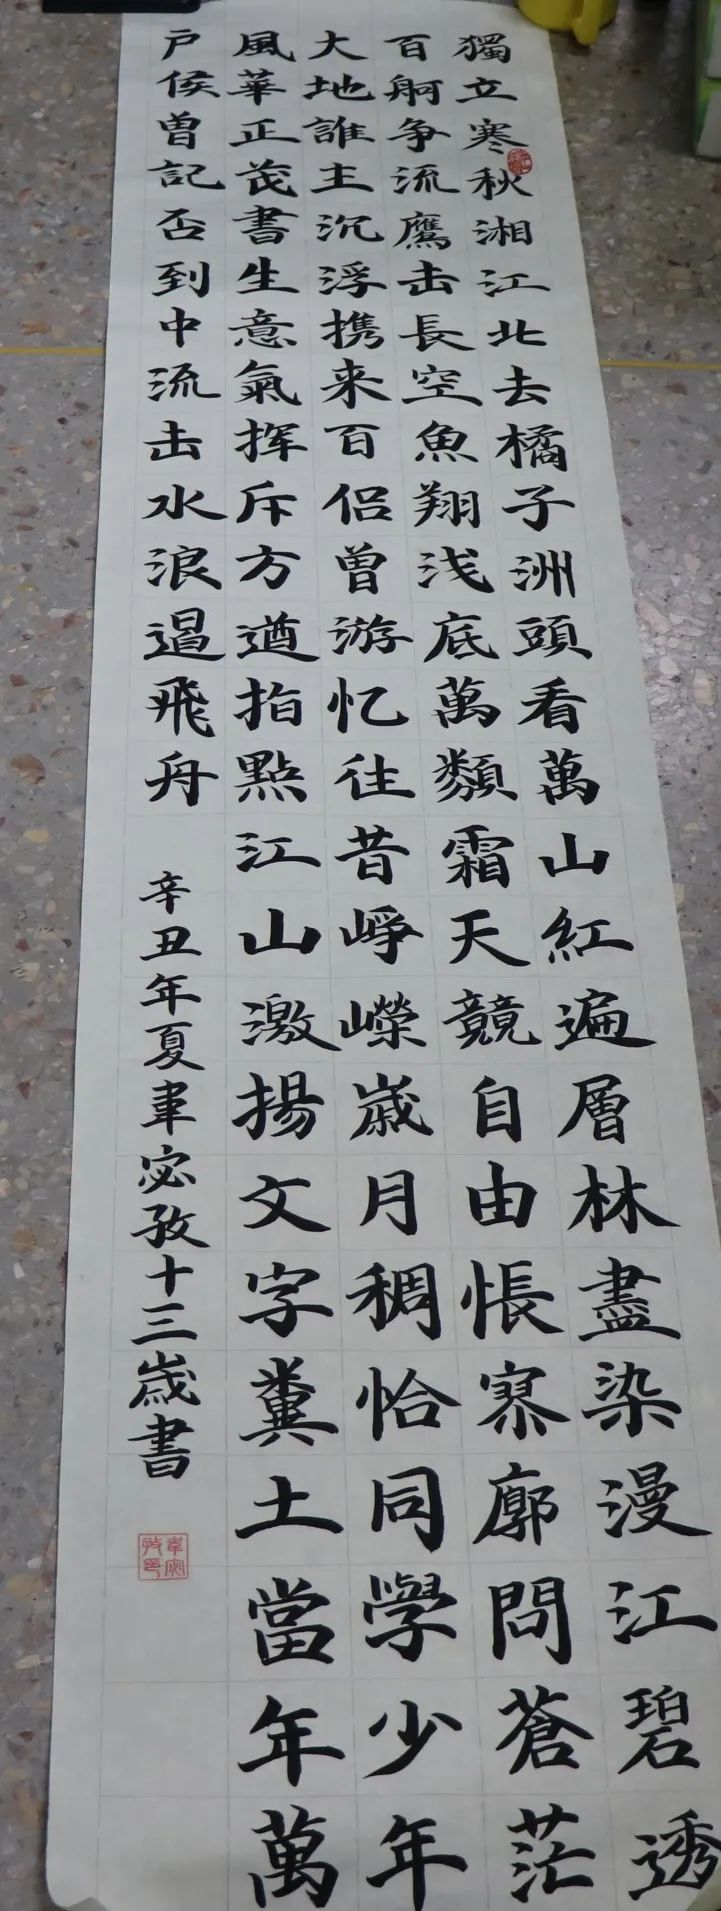 獨立寒秋湘江北去橘子洲頭看萬山紅遍層林盡染漫江碧透
百舸争流鷹击長空魚翔浅底萬類霜天競自由悵寥廓問蒼茫
大地誰主沉浮携来百侣曾游忆往昔崢嶸歲月稠恰同學少年
風華正茂書生意氣挥斥方遒指點江山激揚文字糞土當年萬
户侯曾記否到中流击水浪遏飛舟
辛丑年夏韋宓孜十三歲書